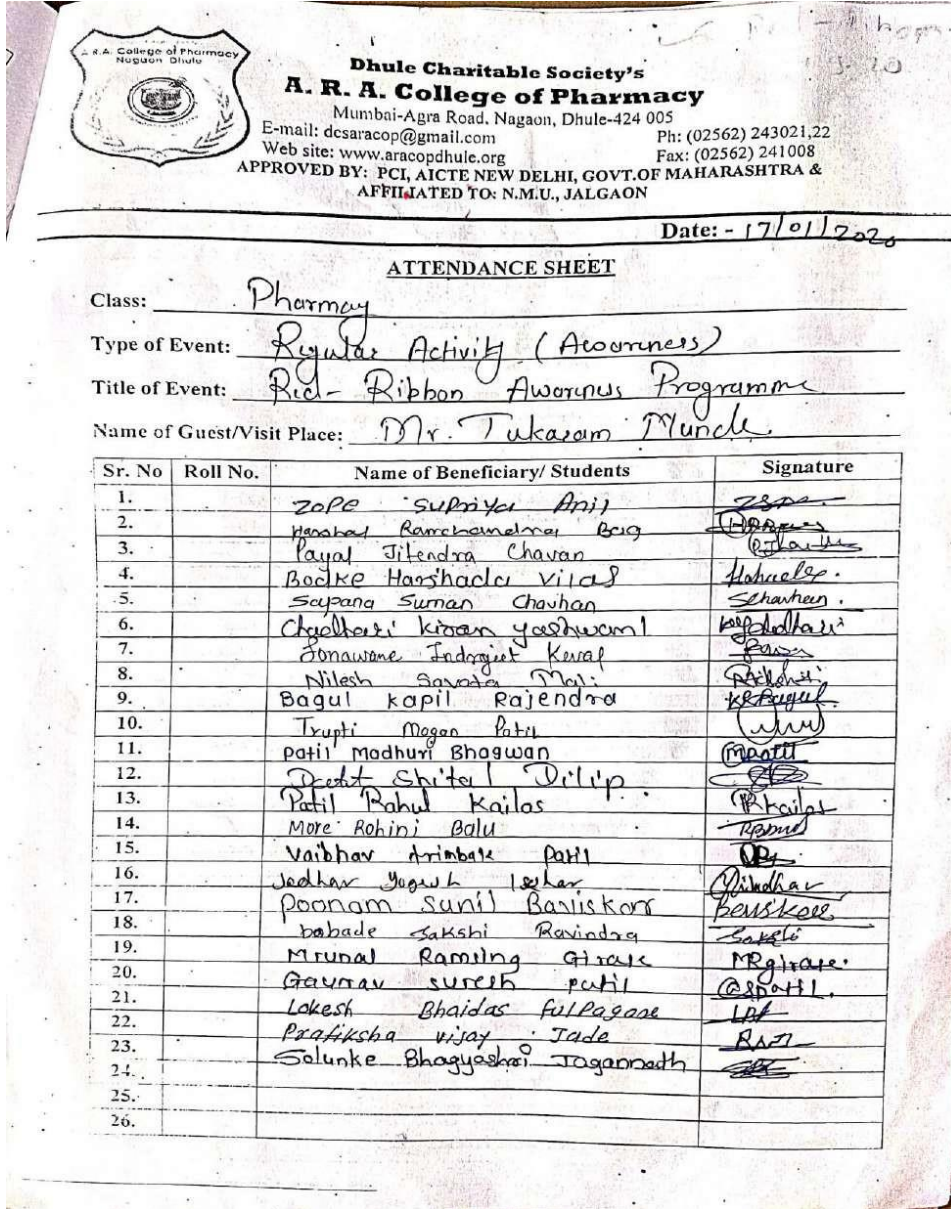 A.R.A. College of Pharmacy
Nagaon Dhule
Dhule Charitable Society's
A. R. A. College of Pharmacy
Mumbai-Agra Road, Nagaon, Dhule-424 005
E-mail: dcsaracop@gmail.com Ph: (02562) 243021,22
Web site: www.aracopdhule.org Fax: (02562) 241008
APPROVED BY: PCI, AICTE NEW DELHI, GOVT.OF MAHARASHTRA &
AFFILIATED TO: N.M.U., JALGAON
Date: - 17/01/2020
ATTENDANCE SHEET
Class: Pharmay
Type of Event: Regular Activity (Awareness)
Title of Event: Red-Ribbon Awarnus Programme
Name of Guest/Visit Place: Mr. Tukaram Munde
Sr. No Roll No. Name of Beneficiary/ Students Signature
1. Zope Supriya Anil
2. Harshal Ramchandra
3. Payal Jitendra Chavan
4. Bodke Harshada Vilas
5. Sapana Suman Chavhan Schavhan.
6. Chaudhari kiran yashwant
7. Sonawane Indrajeet Keval
8. Nilesh Mali
9. Bagul kapil Rajendra KRBagul
10. Trupti Magan Patil
11. Patil Madhuri Bhagwan MPatil
12. Shital Dilip
13. Patil Rahul Kailas RKailas
14. More Rohini Balu
15. Vaibhav trimbak Patil
16. Jadhav Yogesh
17. Poonam Sunil Baviskar
18. babade Sakshi Ravindra Sakshi
19. Mrunal Ramsing Girase MRgirase.
20. Gaurav suresh patil GSpatil.
21. Lokesh Bhaidas fulPagare
22. Pratiksha vijay Jade
23. Salunke Bhagyashri Jagannath
24.
25.
26.